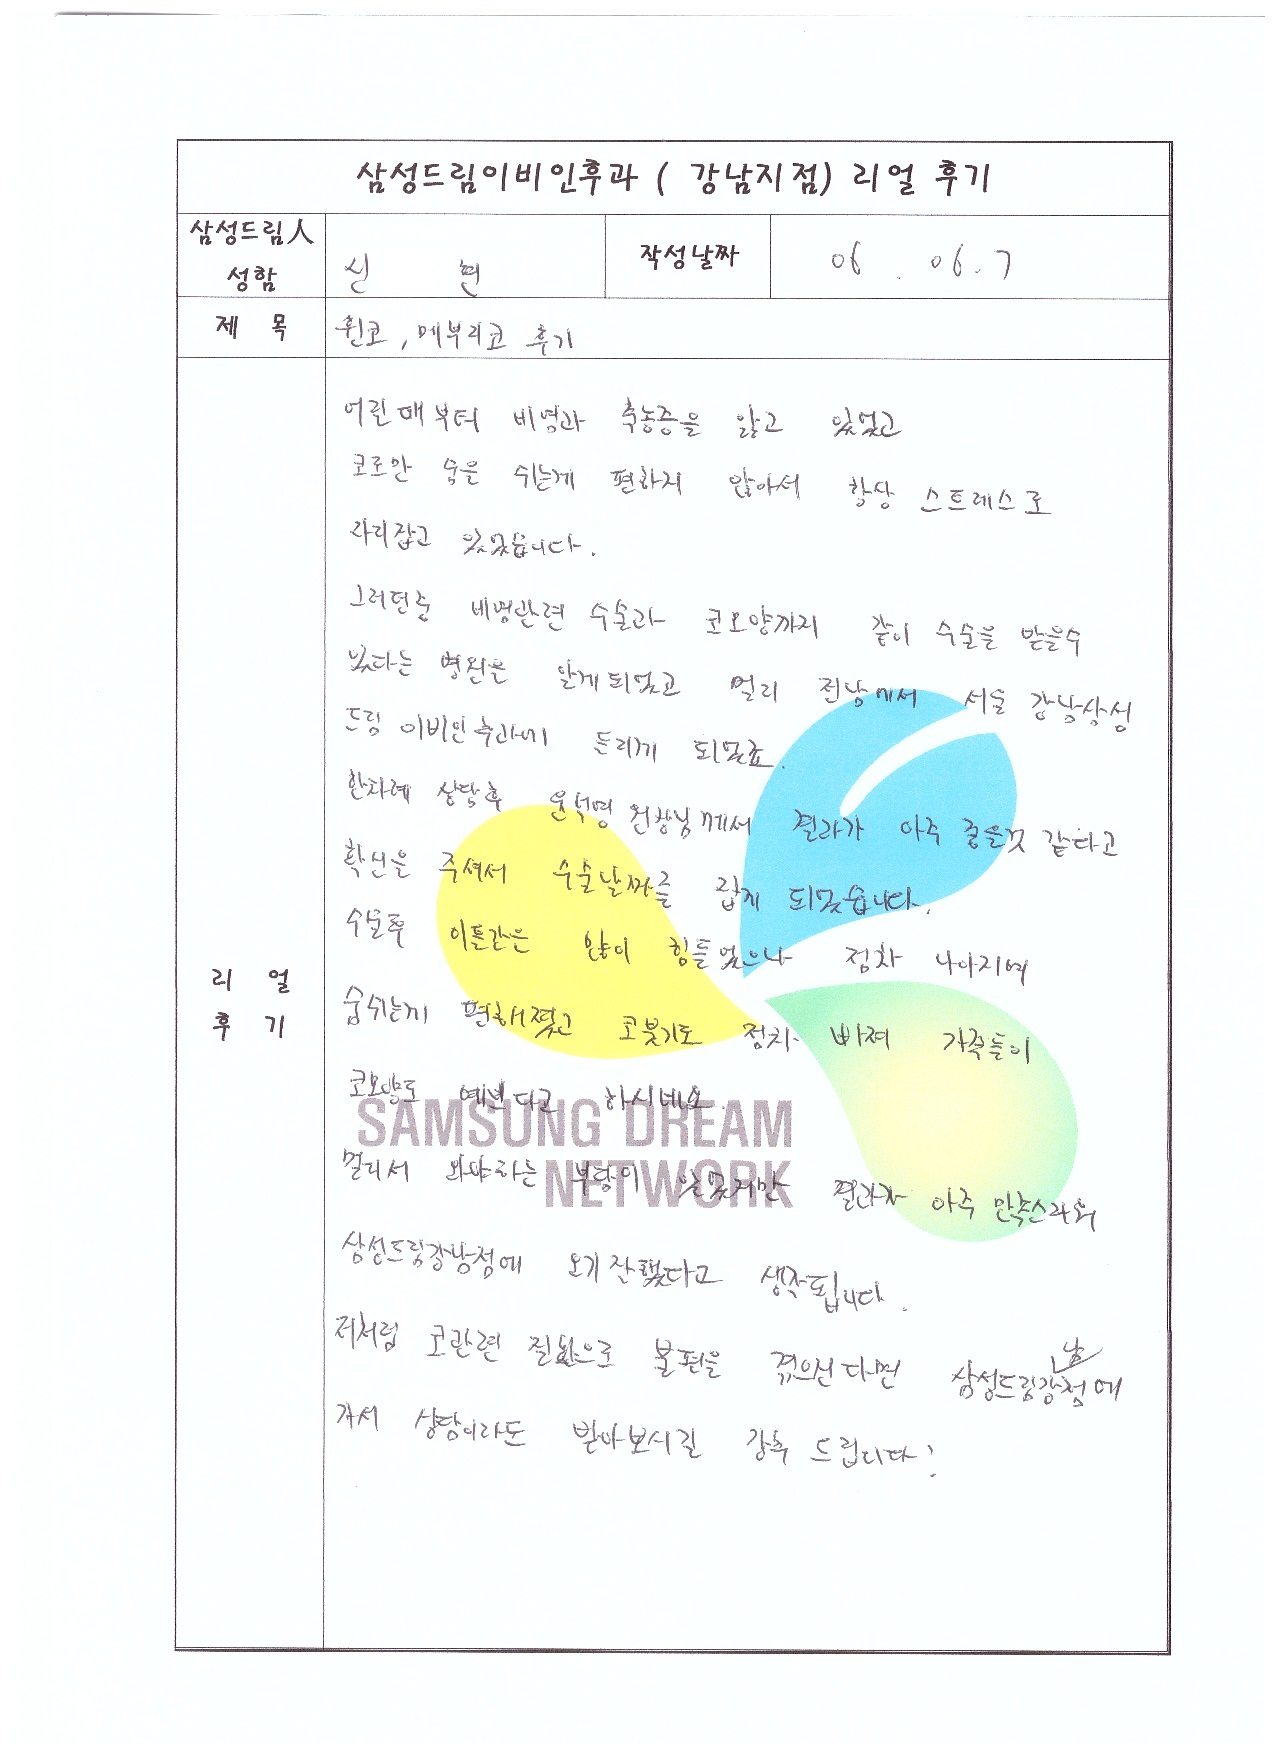 삼성드림이비인후과 ( 강남지점) 리얼 후기
삼성드림人 성함
신 현
작성날짜
06 . 06 . 7
제 목
휜코 , 메부리코 후기
리 얼 후 기
어린때부터 비염과 축농증을 앓고 있었고
코로만 숨을 쉬는게 편하지 않아서 항상 스트레스로
자리잡고 있었습니다.
그러던중 비염관련 수술과 코모양까지 같이 수술을 받을수
있다는 병원을 알게되었고 멀리 전남에서 서울 강남삼성
드림 이비인후과에 들리게 되었죠.
한차례 상담후 윤석영 원장님께서 결과가 아주 좋을것 같다고
확신을 주셔서 수술날짜를 잡게 되었습니다.
수술후 이틀간은 많이 힘들었으나 점차 나아지며
숨쉬는게 편해졌고 코붓기도 점차 빠져 가족들이
코모양도 예쁘다고 하시네요.
멀리서 와야하는 부담이 있었지만 결과가 아주 만족스러워
삼성드림강남점에 오기잘했다고 생각됩니다.
저처럼 코관련 질환으로 불편을 겪으신다면 삼성드림강남점에
가서 상담이라도 받아보시길 강추 드립니다!
SAMSUNG DREAM
NETWORK